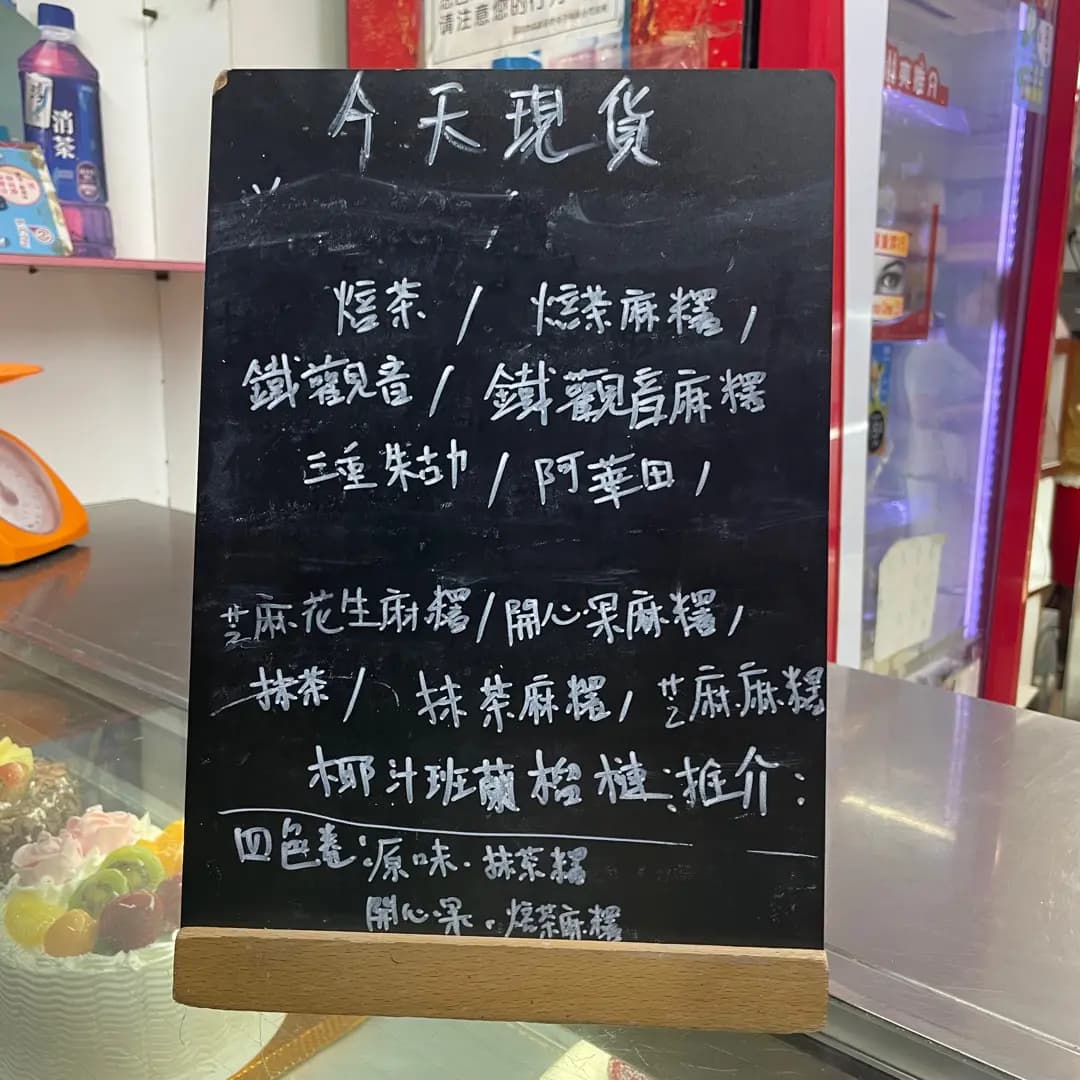 请注意您的行为
消茶
今天現貨
焙茶 / 焙茶麻糬,
鐵觀音 / 鐵觀音麻糬
三重朱古力 / 阿華田,
芝麻花生麻糬/開心果麻糬,
抹茶 / 抹茶麻糬, 芝麻麻糬
椰汁班蘭榴槤:推介:
四色卷:原味.抹茶糬
開心果.焙茶麻糬